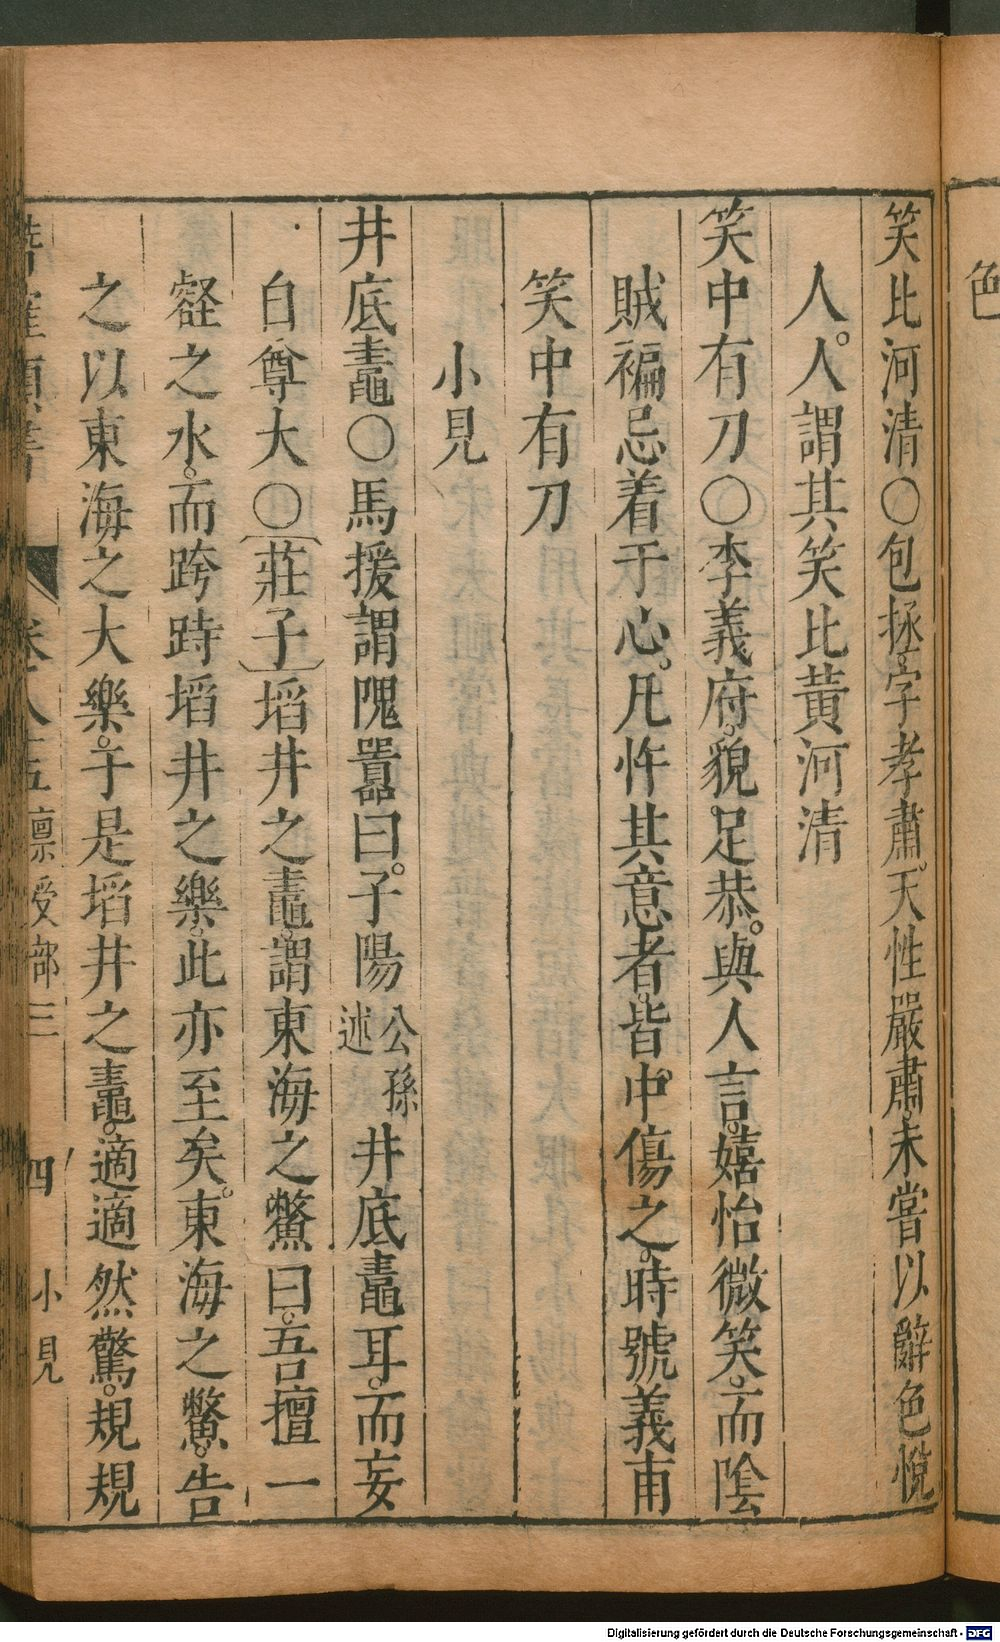 色
笑比河清○包拯字孝肅。天性嚴肅。未嘗以辭色悅
人。人謂其笑比黃河清
笑中有刀○李義府。貌足恭。與人言。嬉怡微笑。而陰
賊褊忌着于心。凡忤其意者。皆中傷之。時號義甫
笑中有刀
小見
井底鼃○馬援謂隗囂曰。子陽公孫述井底鼃耳。而妄
自尊大○〔莊子〕埳井之鼃。謂東海之鱉曰。吾擅一
壑之水。而跨跱埳井之樂。此亦至矣。東海之鱉。告
之以東海之大樂。于是埳井之鼃。適適然驚。規規
類書 卷 禀受部三 四 小見
Digitalisierung gefördert durch die Deutsche Forschungsgemeinschaft - DFG